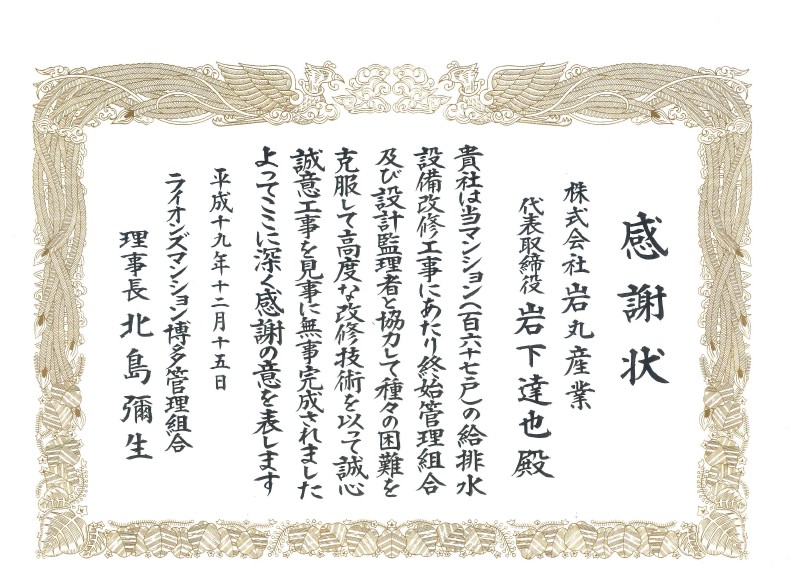 感謝状
株式会社岩丸産業
代表取締役 岩下達也殿
貴社は当マンション(百六十七戸)の給排水
設備改修工事にあたり終始管理組合
及び設計監理者と協力して種々の困難を
克服して高度な改修技術を以って誠心
誠意工事を見事に無事完成されました
よってここに深く感謝の意を表します
平成十九年十二月十五日
ライオンズマンション博多管理組合
理事長 北島彌生